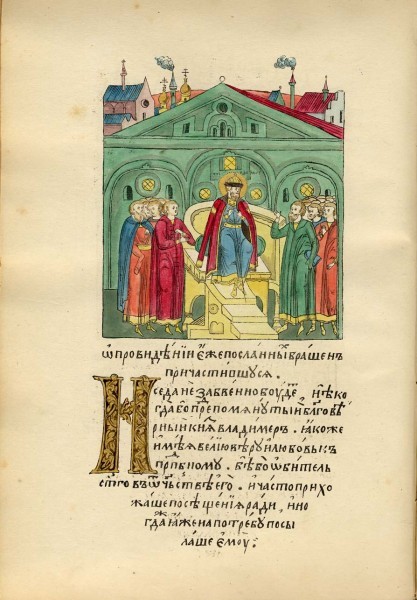 ѡ провидѣнїи еже посланны брашенъ
причастившуся.
И се да не забвенно боудѐ. нѣко
гда бо препомянутый благовѣ
рный кнѧз владимеръ. ꙗкоже
имѣя велїю вѣру и любовь къ
прпбному. бѣ бо ѡбитель
ст҃го въ ѡч҃ьствѣ его. и часто прихо
жаше посѣщенїя ради. ино
гда и ꙗже на потребу посы
лаше емоу: